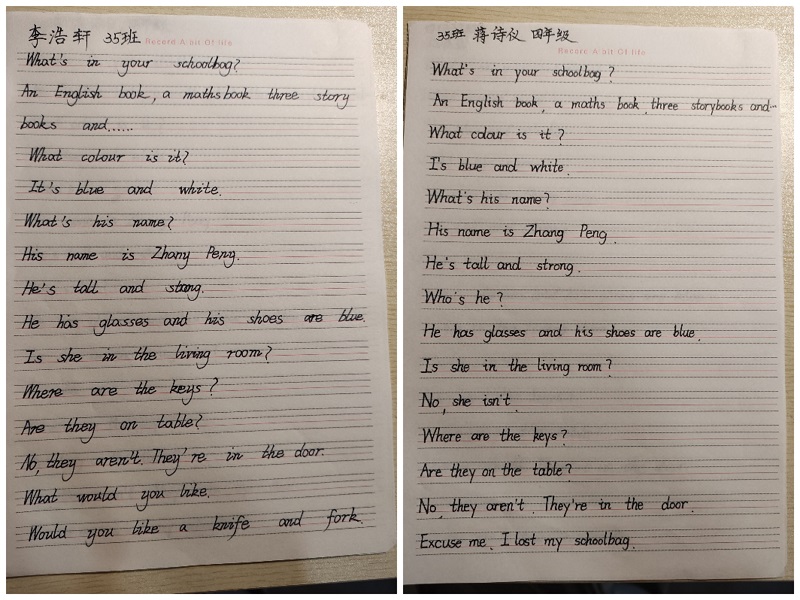 李浩轩 35班
Record A bit Of life
What's in your schoolbag?
An English book, a maths book three story
books and......
What colour is it?
It's blue and white.
What's his name?
His name is Zhany Peng.
He's tall and strong.
He has glasses and his shoes are blue.
Is she in the living room?
Where are the keys?
Are they on table?
No, they aren't. They're in the door.
What would you like.
Would you like a knife and fork.
35班 蒋诗仪 四年级
Record A bit Of life
What's in your schoolbag?
An English book, a maths book, three storybooks and...
What colour is it?
I's blue and white.
What's his name?
His name is Zhang Peng.
He's tall and strong.
Who's he?
He has glasses and his shoes are blue.
Is she in the living room?
No, she isn't.
Where are the keys?
Are they on the table?
No, they aren't. They're in the door.
Excuse me. I lost my schoolbag.